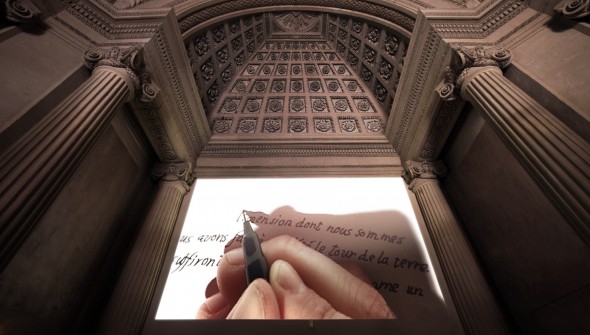 mension dont nous sommes
us avons fa le tour de la terre
suffiront
ame un